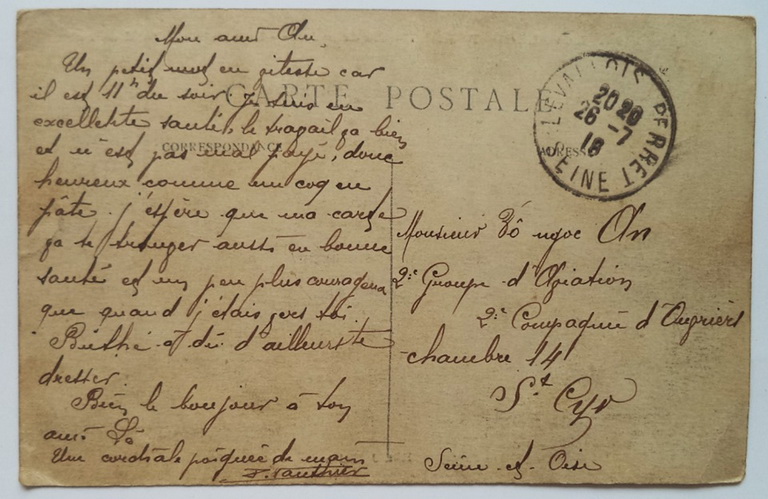 CARTE POSTALE
CORRESPONDANCE
ADRESSE
LEVALLOIS PERRET
20 20
26 -7
18
SEINE
Mon ami An,
Un petit mot en vitesse car
il est 11h du soir, je suis en
excellente santé, le travail ça bien
et n'est pas mal payé, donc
heureux comme un coq en
pâte. j'espère que ma carte
ça te trouver aussi en bonne
santé et un peu plus courageux
que quand j'étais vers toi.
Buthé a dû d'ailleurs te
dresser.
Bien le bonjour à ton
ami Lê
Une cordiale poignée de main
Monsieur Võ ngoc An
2e Groupe d'Aviation
2e Compagnie d'Ouvriers
chambre 14
St Cyr
Seine et Oise